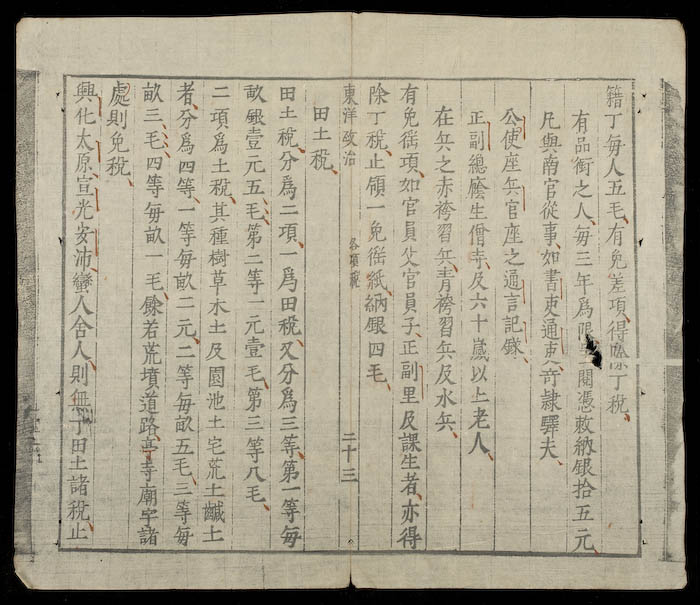 籍丁每人五毛有免差項得除丁稅
有品銜之人每三年爲限閱憑敕納銀拾五元
凡與南官從事如書吏通吏奇隸驛夫
公使座兵官座之通言記錄
正副總廕生僧寺及六十歲以上老人
在兵之赤袴習兵青袴習兵及水兵
有免徭項如官員父官員子正副里及課生者亦得
除丁稅止領一免徭紙納銀四毛
東洋政治 各項稅 二十三
田土稅
田土稅分爲二項一爲田稅又分爲三等第一等每
畝銀壹元五毛第二等一元壹毛第三等八毛
二項爲土稅其種樹草木土及園池土宅荒土鹹土
者分爲四等一等每畝二元二等每畝五毛三等每
畝三毛四等每畝一毛餘若荒墳道路亭寺廟宇諸
處則免稅
興化太原宣光安沛蠻人舍人則無丁田土諸稅止